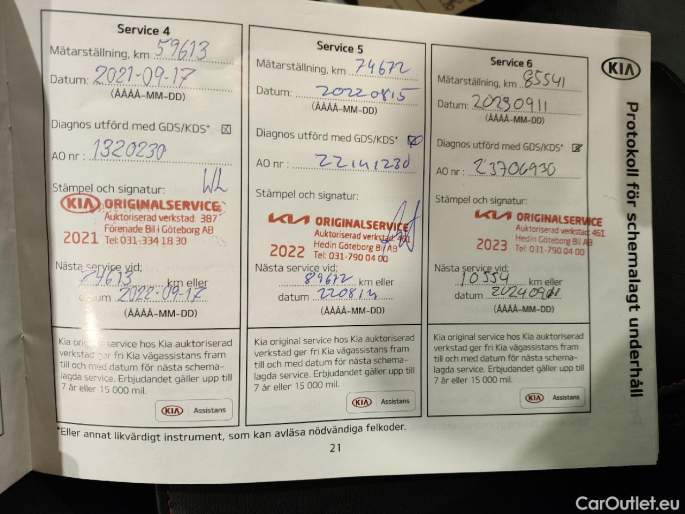 Service 4
Mätarställning, km 59613
Datum: 2021-09-17
(ÅÅÅÅ-MM-DD)
Diagnos utförd med GDS/KDS* ☒
AO nr: 1320230
Stämpel och signatur: WL
KIA ORIGINALSERVICE
Auktoriserad verkstad 387
Förenade Bil i Göteborg AB
2021 Tel: 031-334 18 30
Nästa service vid:
74613 km eller
datum 2022-09-17
(ÅÅÅÅ-MM-DD)
Kia original service hos Kia auktoriserad
verkstad ger fri Kia vägassistans fram
till och med datum för nästa schema-
lagda service. Erbjudandet gäller upp till
7 år eller 15 000 mil.
KIA Assistans
Service 5
Mätarställning, km 74672
Datum: 20220815
(ÅÅÅÅ-MM-DD)
Diagnos utförd med GDS/KDS*
AO nr: 22141230
Stämpel och signatur:
KIA ORIGINALSERVICE
Auktoriserad verkstad 461
Hedin Göteborg Bil AB
2022 Tel: 031-790 04 00
Nästa service vid:
89672 km eller
datum
(ÅÅÅÅ-MM-DD)
Kia original service hos Kia auktoriserad
verkstad ger fri Kia vägassistans fram
till och med datum för nästa schema-
lagda service. Erbjudandet gäller upp till
7 år eller 15 000 mil.
KIA Assistans
Service 6
Mätarställning, km 85541
Datum: 20230911
(ÅÅÅÅ-MM-DD)
Diagnos utförd med GDS/KDS*
AO nr: 23706930
Stämpel och signatur:
KIA ORIGINALSERVICE
Auktoriserad verkstad 461
Hedin Göteborg Bil AB
2023 Tel: 031-790 04 00
Nästa service vid:
10554 km eller
datum
(ÅÅÅÅ-MM-DD)
Kia original service hos Kia auktoriserad
verkstad ger fri Kia vägassistans fram
till och med datum för nästa schema-
lagda service. Erbjudandet gäller upp till
7 år eller 15 000 mil.
KIA Assistans
*Eller annat likvärdigt instrument, som kan avläsa nödvändiga felkoder.
21
KIA
Protokoll för schemalagt underhåll
CarOutlet.eu